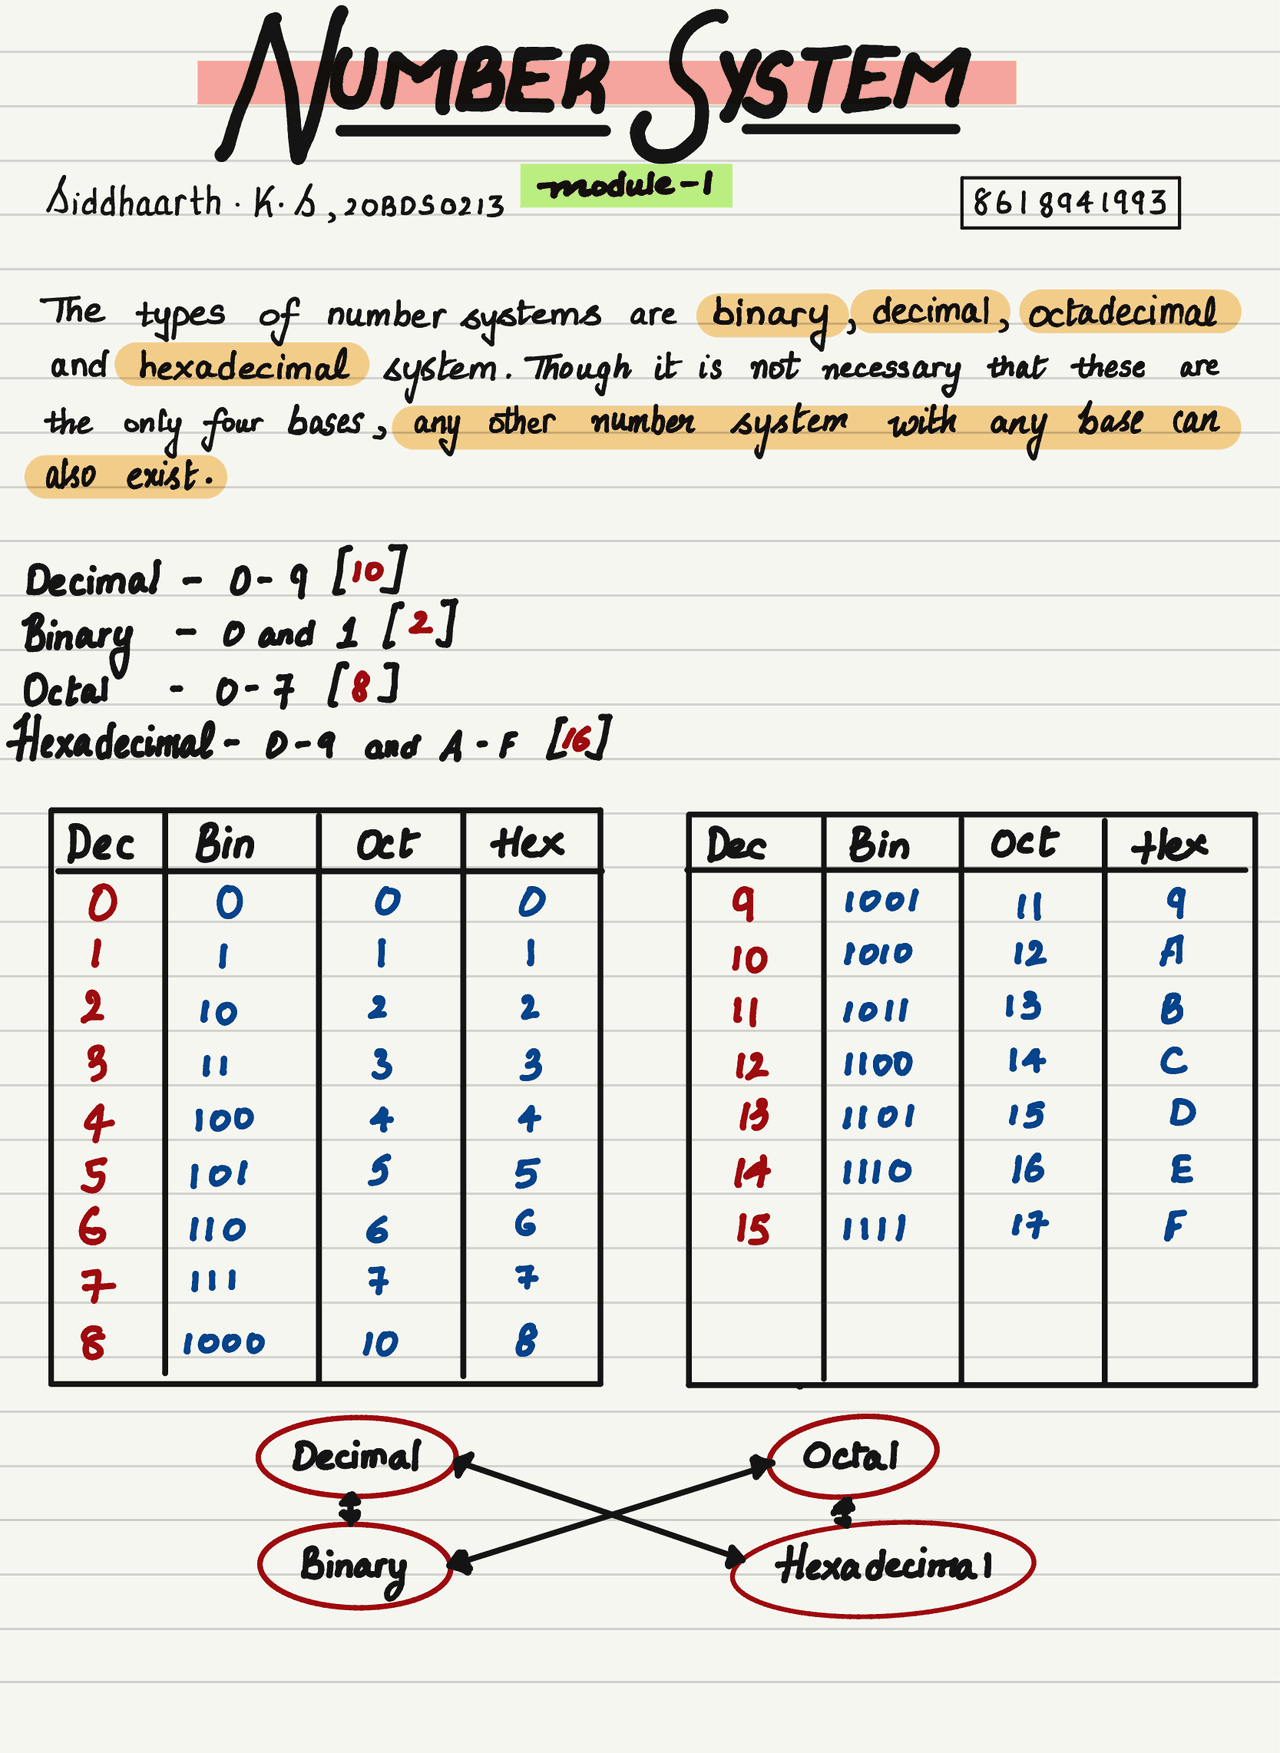 NUMBER SYSTEM
module-1
Siddhaarth. K. S, 20BDS0213
8618941993
The types of number systems are binary, decimal, octadecimal
and hexadecimal system. Though it is not necessary that these are
the only four bases, any other number system with any base can
also exist.
Decimal - 0-9 [10]
Binary - 0 and 1 [2]
Octal - 0-7 [8]
Hexadecimal - 0-9 and A-F [16]
Dec Bin Oct Hex
0 0 0 0
1 1 1 1
2 10 2 2
3 11 3 3
4 100 4 4
5 101 5 5
6 110 6 6
7 111 7 7
8 1000 10 8
Dec Bin Oct Hex
9 1001 11 9
10 1010 12 A
11 1011 13 B
12 1100 14 C
13 1101 15 D
14 1110 16 E
15 1111 17 F
Decimal Octal
Binary Hexadecimal